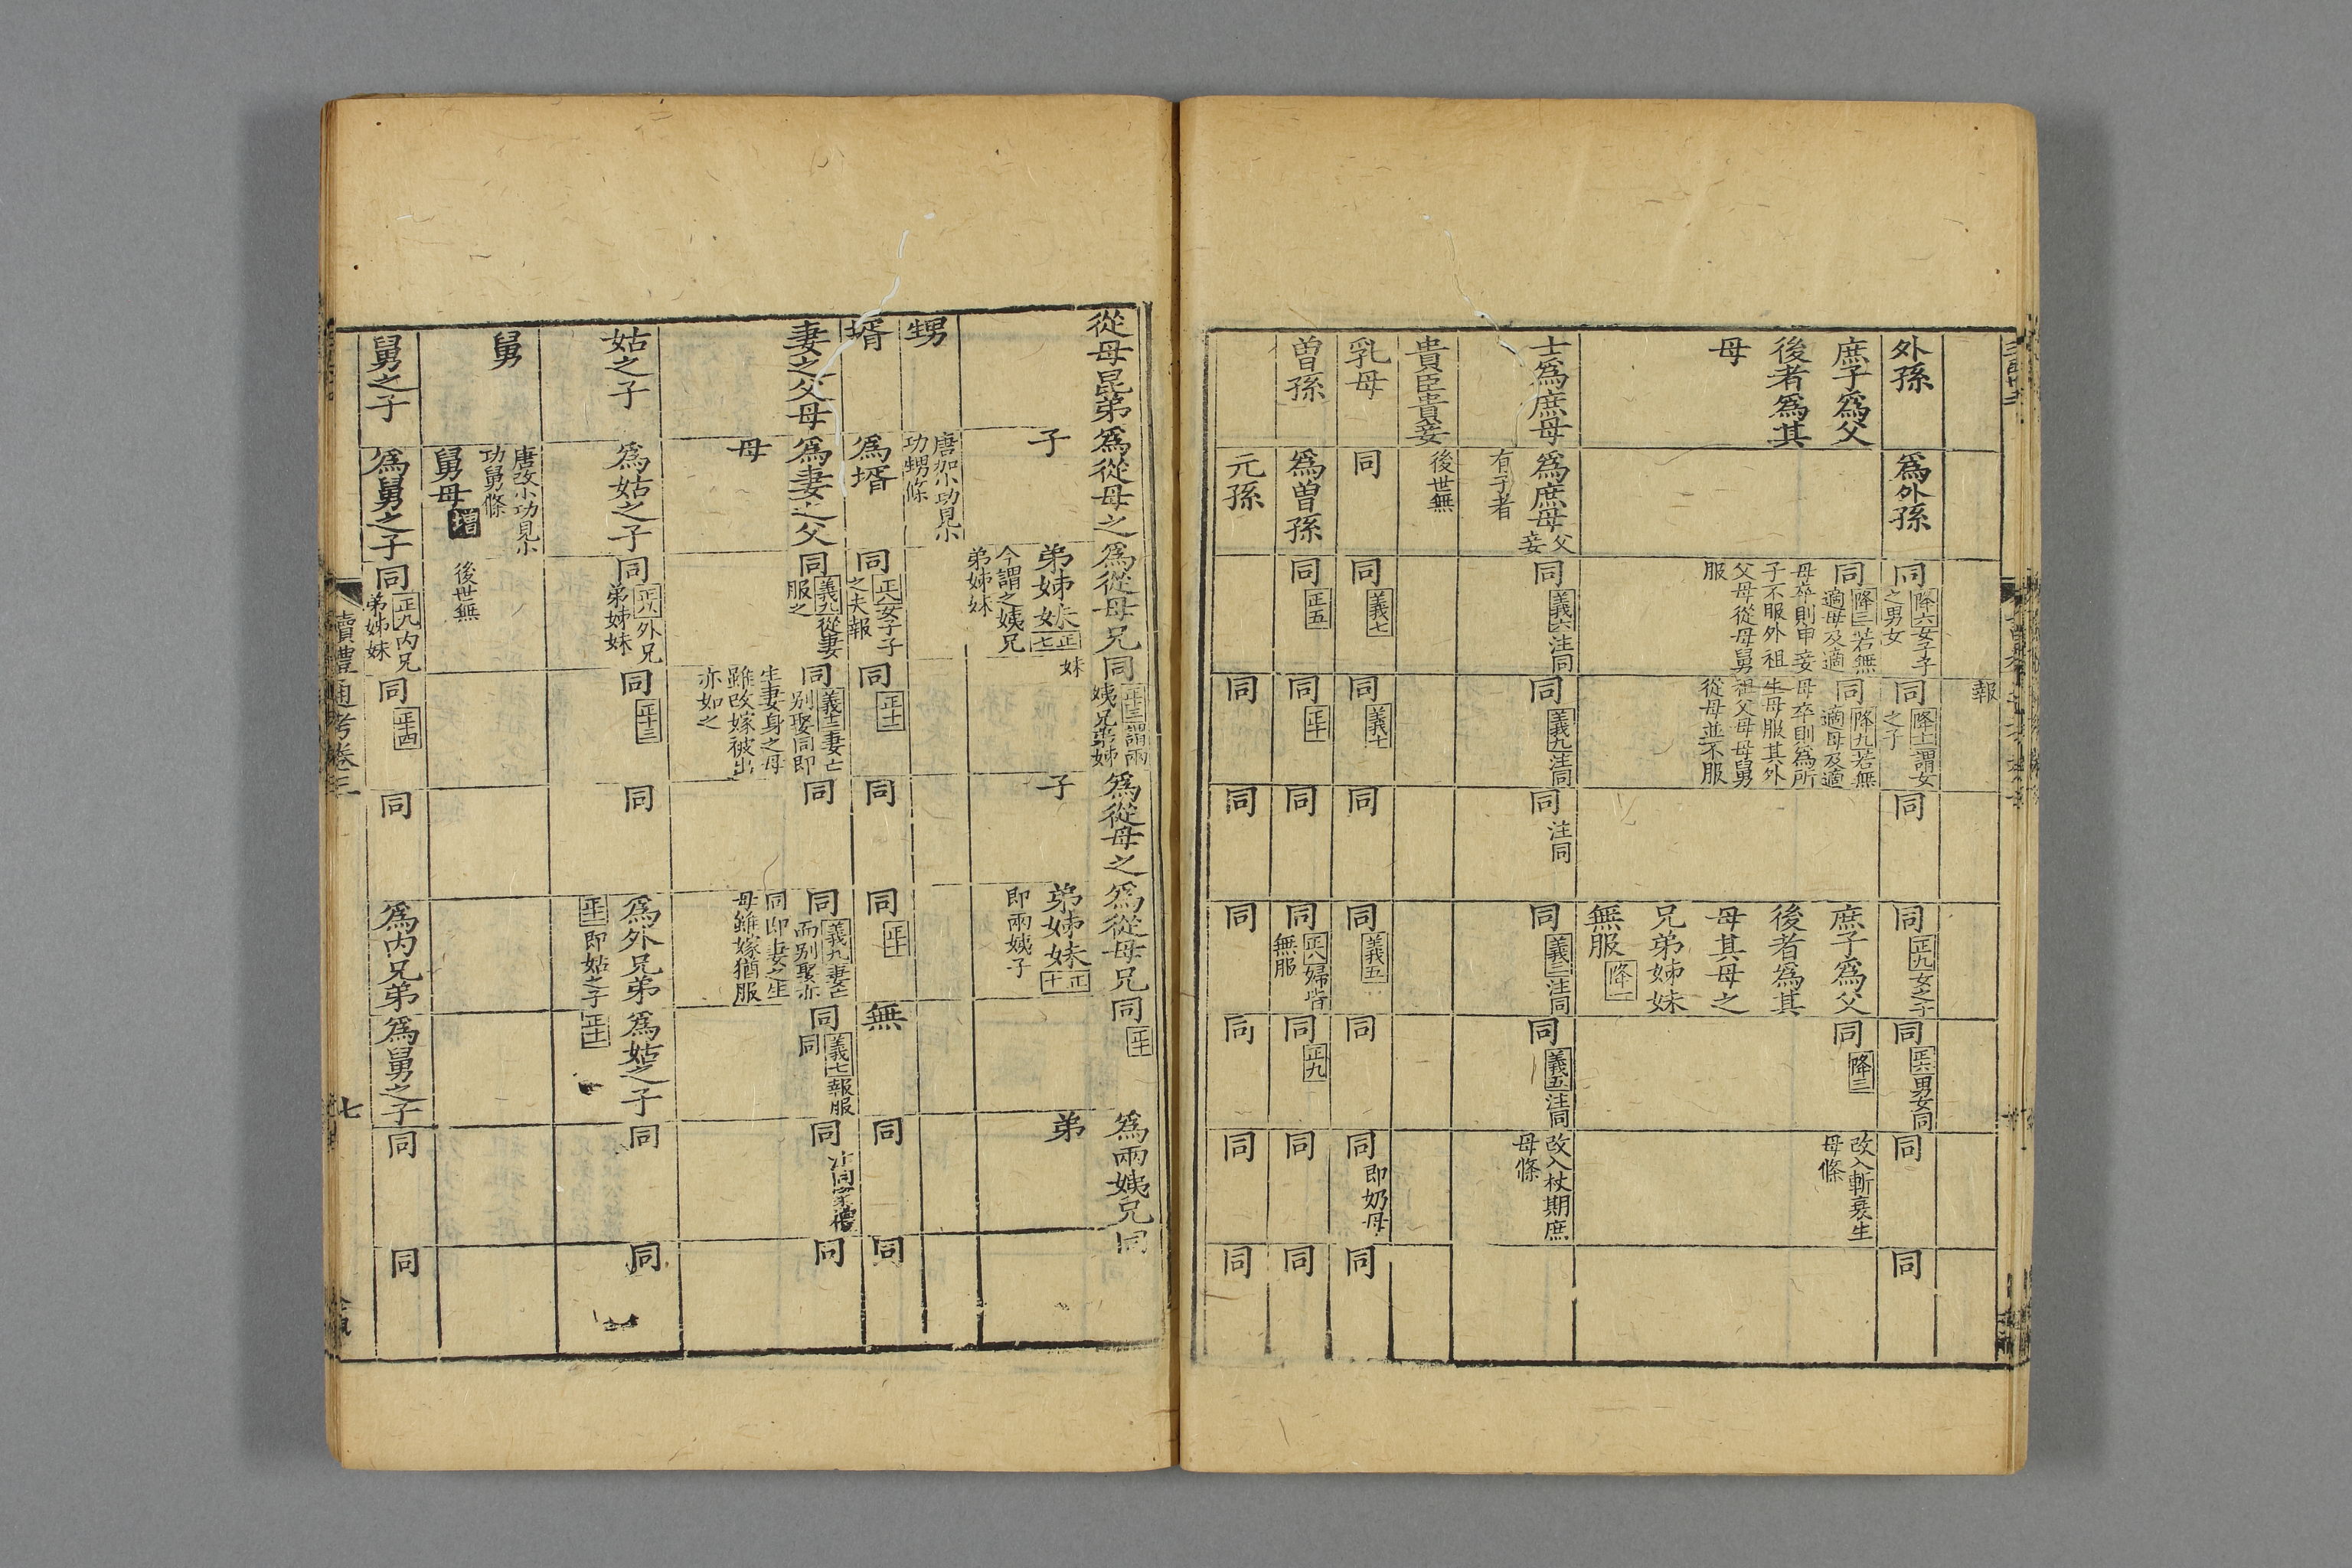 報
外孫
爲外孫
同 降六女子子
之男女
同 降十一謂女
之子
同
同 正九女之子
同 正六男女同
同
同
庶子爲父
後者爲其
母
同 降三若無
適母及適
母卒則申妾
子不服外祖
父母從母舅
服
同 降九若無
適母及適
母卒則爲所
生母服其外
祖父母母舅
從母並不服
庶子爲父
後者爲其
母其母之
兄弟姊妹
無服 降一
同 降三
改入斬衰生
母條
士爲庶母
爲庶母 父
妾
有子者
同 義六注同
同 義九注同
同 注同
同 義三注同
同 義五注同
改入杖期庶
母條
貴臣貴妾
後世無
乳母
同
同 義七
同 義十
同
同 義五
同
同 即奶母
同
曾孫
爲曾孫
同 正五
同 正十
同
同 正八婦皆
無服
同 正九
同
同
元孫
同
同
同
同
同
同
從母昆弟
爲從母之
子
爲從母兄
弟姊妹 正七
今謂之姨兄
弟姊妹
同 正十三謂兩
姨兄弟姊
妹
爲從母之
子
爲從母兄
弟姊妹 正十
即兩姨子
同 正十
爲兩姨兄
弟
同
甥
唐加小功見小
功甥條
壻
爲壻
同 正八女子子
之夫報
同 正十二
同
同 正十一
無
同
同
妻之父母
爲妻之父
母
同 義九從妻
服之
同 義十二妻亡
別娶同即
生妻身之母
雖改嫁被出
亦如之
同
同 義九妻亡
而別娶亦
同即妻之生
母雖嫁猶服
同 義七報服
同
同 注同家禮
同
姑之子
爲姑之子
同 正八外兄
弟姊妹
同 正十三
同
爲外兄弟
正十二 即姑之子
爲姑之子
正十一
同
同
舅
唐改小功見小
功舅條
舅母 增
後世無
舅之子
爲舅之子
同 正九內兄
弟姊妹
同 正十四
同
爲內兄弟
爲舅之子
同
同
讀禮通考卷三
七